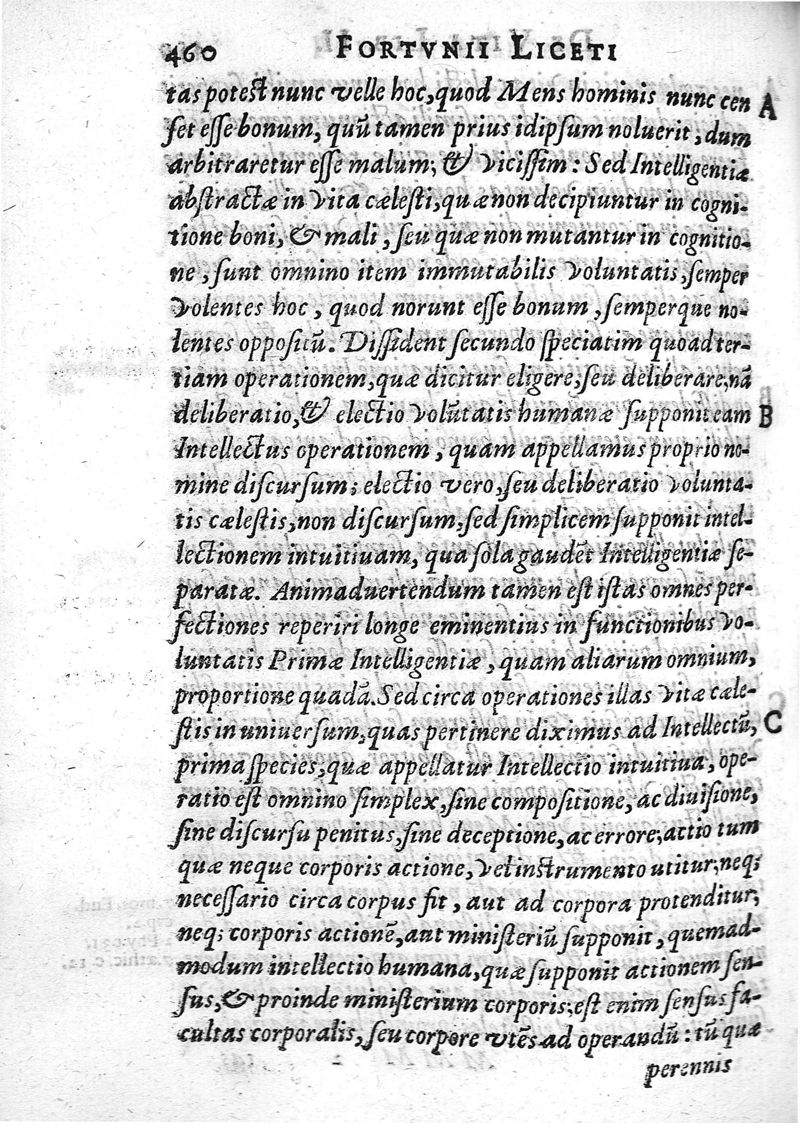 460 FORTVNII LICETI
tas potest nunc velle hoc, quod Mens hominis nunc cen A
set esse bonum, quũ tamen prius idipsum noluerit, dum
arbitraretur esse malum; & vicissim: Sed Intelligentiæ
abstractæ in vita cælesti, quæ non decipiuntur in cogni-
tione boni, & mali, seu quæ non mutantur in cognitio-
ne, sunt omnino item immutabilis voluntatis, semper
volentes hoc, quod norunt esse bonum, semperque no-
lentes oppositũ. Dissident secundo speciatim quoad ter-
tiam operationem, quæ dicitur eligere, seu deliberare; nã
deliberatio, & electio volũtatis humanæ supponit eam B
Intellectus operationem, quam appellamus proprio no-
mine discursum; electio vero, seu deliberatio volunta-
tis cælestis, non discursum, sed simplicem supponit intel-
lectionem intuitiuam, qua sola gaudẽt Intelligentiæ se-
paratæ. Animaduertendum tamen est istas omnes per-
fectiones reperiri longe eminentius in functionibus vo-
luntatis Primæ Intelligentiæ, quam aliarum omnium,
proportione quadã. Sed circa operationes illas vitæ cæle-
stis in uniuersum, quas pertinere diximus ad Intellectũ, C
prima species, quæ appellatur Intellectio intuitiua, ope-
ratio est omnino simplex, sine compositione, ac diuisione,
sine discursu penitus, sine deceptione, ac errore; actio tum
quæ neque corporis actione, vel instrumento utitur; neq;
necessario circa corpus fit, aut ad corpora protenditur;
neq; corporis actionẽ, aut ministeriũ supponit, quemad-
modum intellectio humana, quæ supponit actionem sen-
sus, & proinde ministerium corporis; est enim sensus fa-
cultas corporalis, seu corpore vtẽs ad operandũ: tũ quæ
perennis